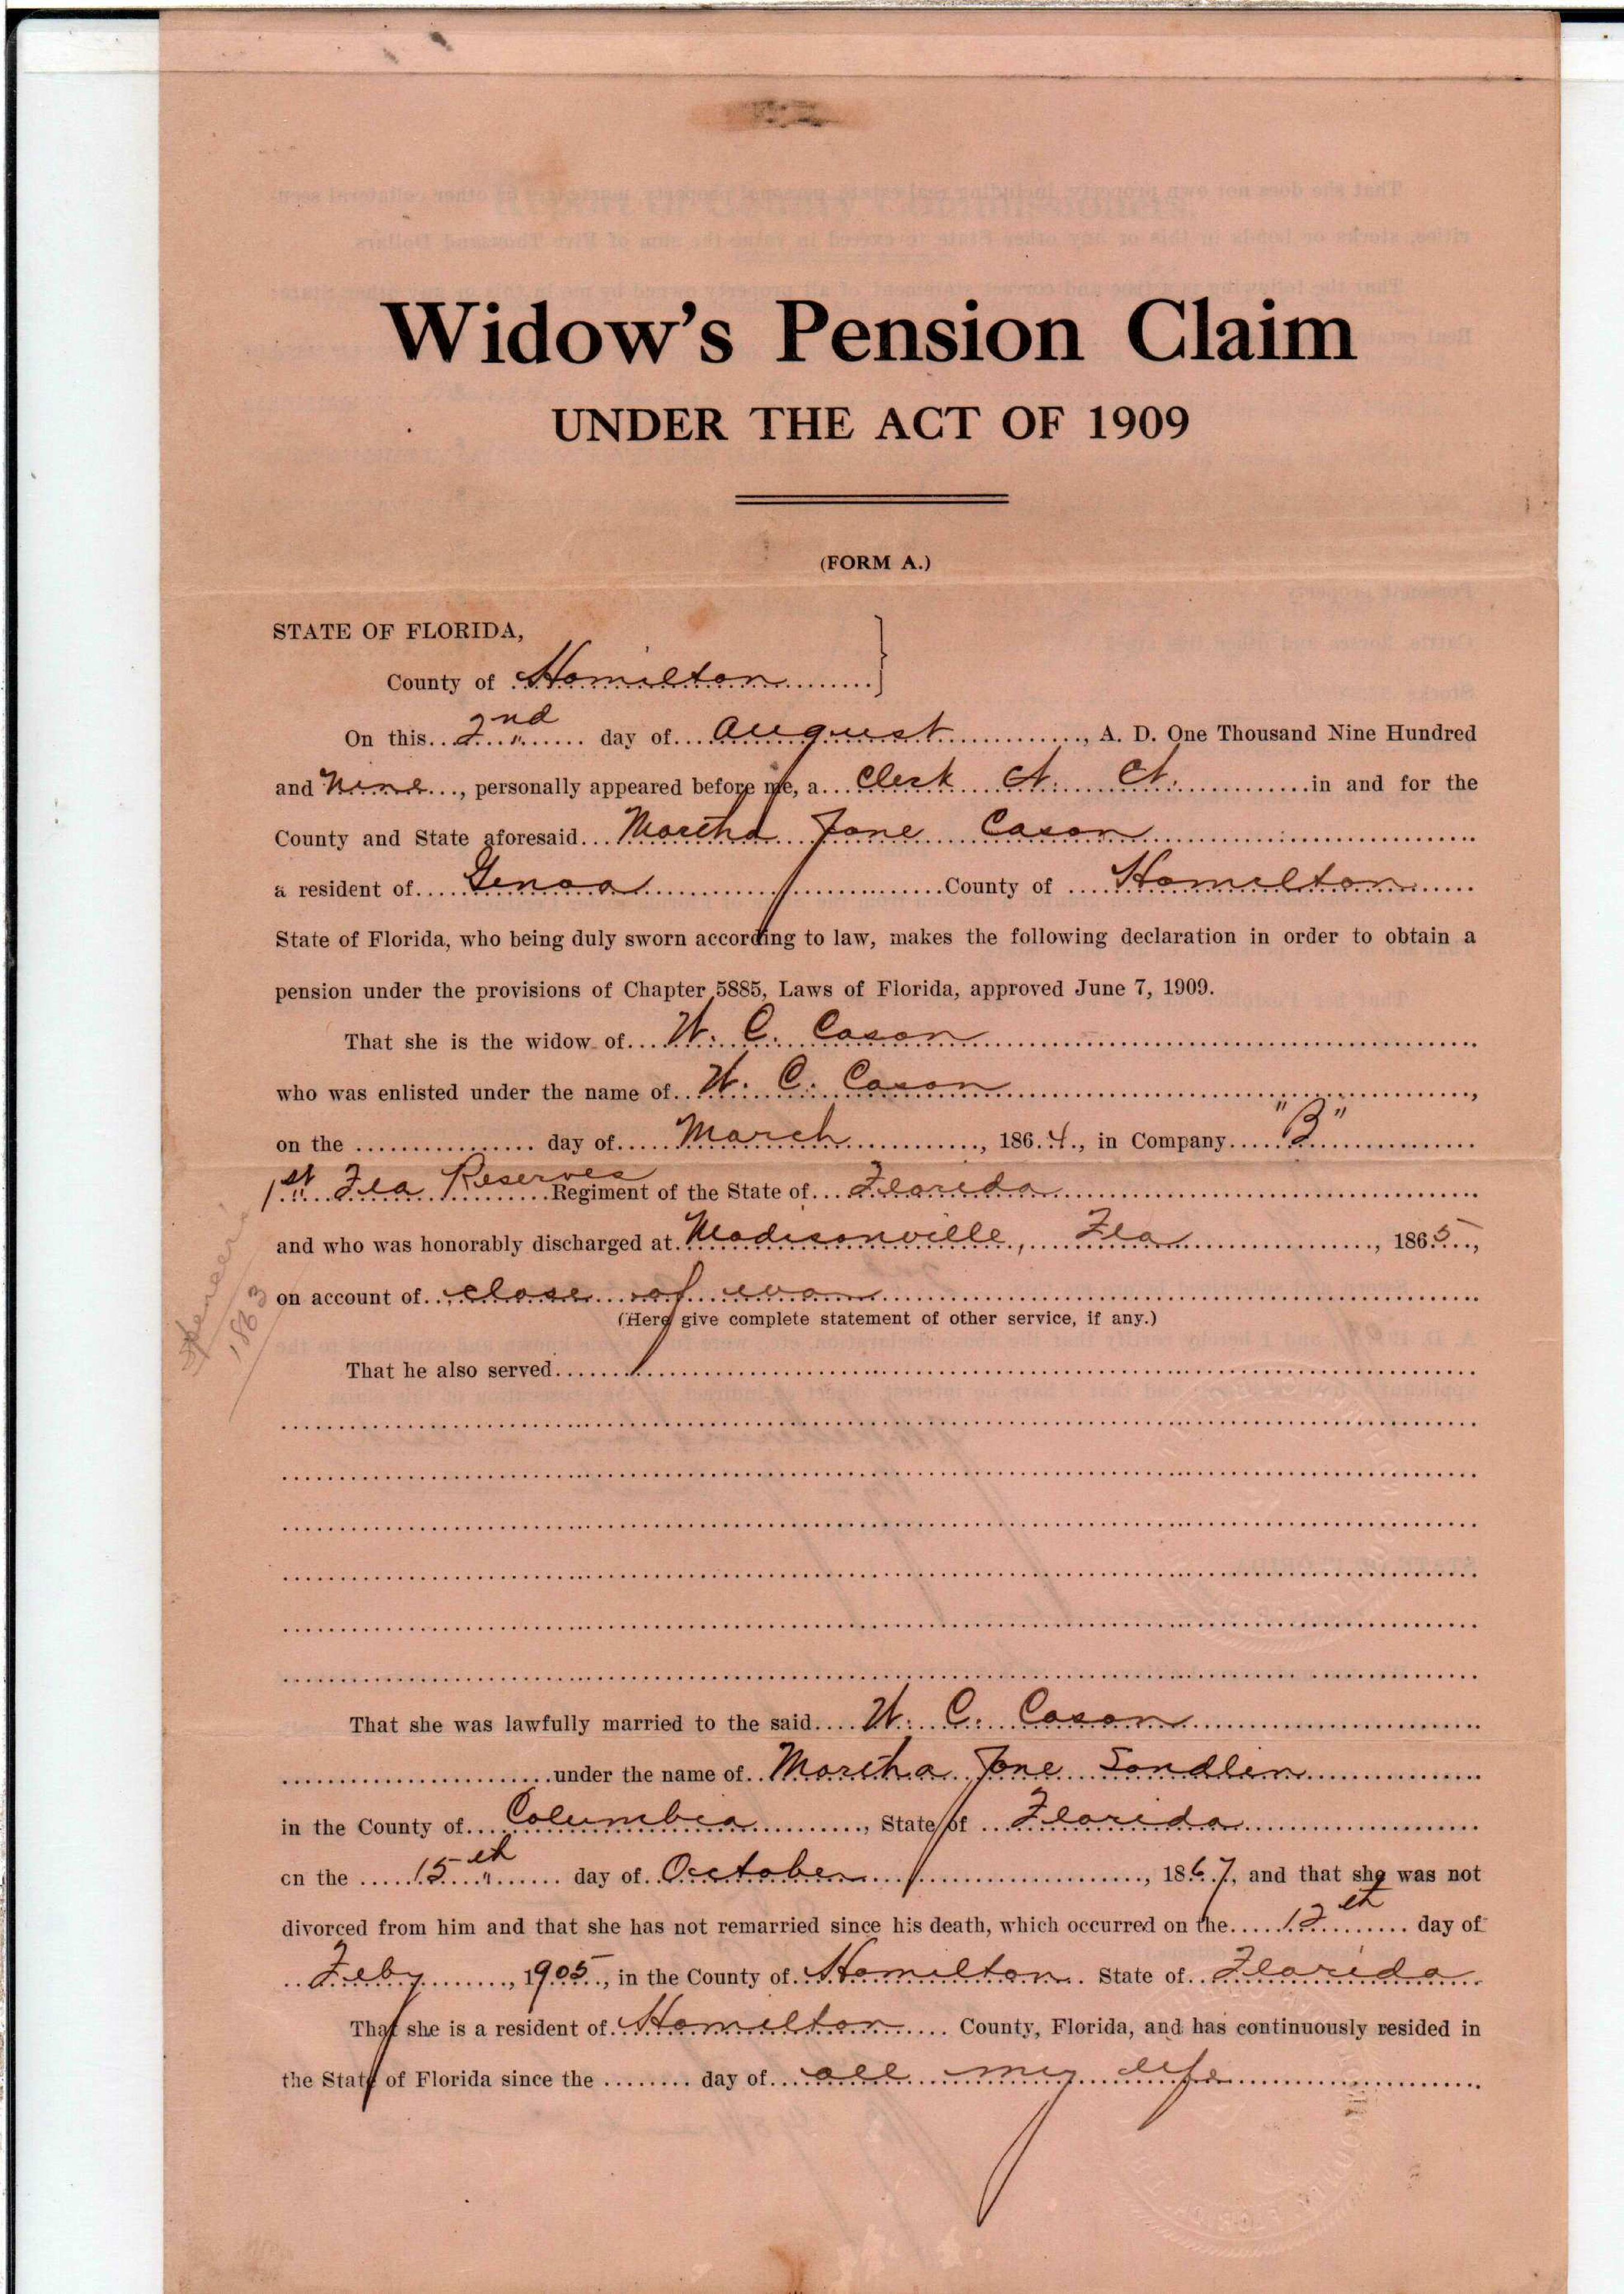 Widow's Pension Claim
UNDER THE ACT OF 1909
(FORM A.)
STATE OF FLORIDA,
County of Hamilton
On this 2nd day of August, A. D. One Thousand Nine Hundred
and Nine, personally appeared before me, a Clerk Ct. Ct. in and for the
County and State aforesaid Martha Jane Cason
a resident of Genoa County of Hamilton
State of Florida, who being duly sworn according to law, makes the following declaration in order to obtain a
pension under the provisions of Chapter 5885, Laws of Florida, approved June 7, 1909.
That she is the widow of W. C. Cason
who was enlisted under the name of W. C. Cason,
on the day of March, 1864, in Company "B"
1st Fla Reserves Regiment of the State of Florida
and who was honorably discharged at Madisonville, Fla, 1865,
1863
on account of close of war
(Here give complete statement of other service, if any.)
That he also served
That she was lawfully married to the said W. C. Cason
under the name of Martha Jane Sandlin
in the County of Columbia, State of Florida
on the 15th day of October, 1867, and that she was not
divorced from him and that she has not remarried since his death, which occurred on the 12th day of
Feby, 1905, in the County of Hamilton State of Florida
That she is a resident of Hamilton County, Florida, and has continuously resided in
the State of Florida since the day of all my life